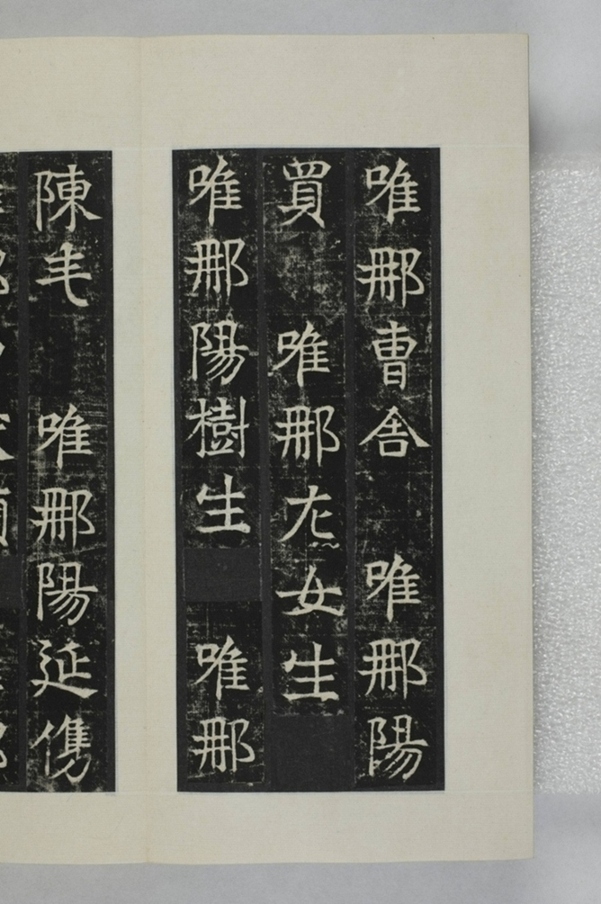 唯那曹舍 唯那陽
買 唯那左女生
唯那陽樹生 唯那
陳毛 唯那陽延儁